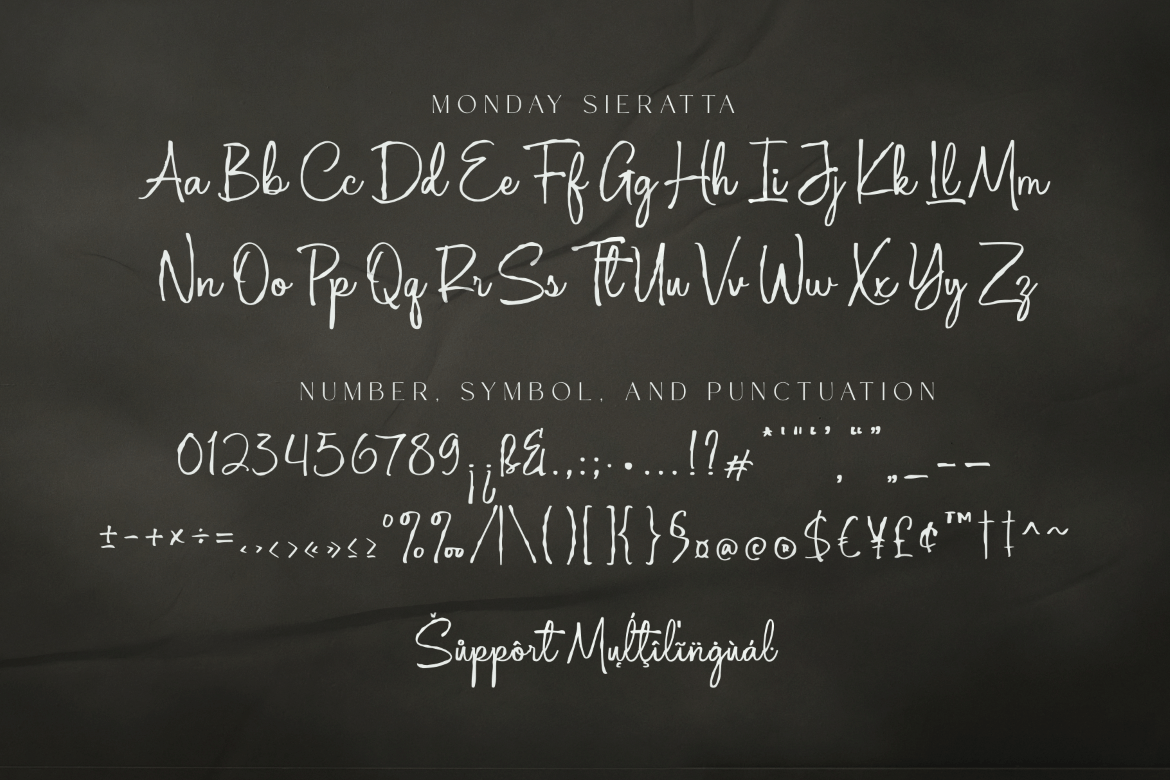 MONDAY SIERATTA
Aa Bb Cc Dd Ee Ff Gg Hh Ii Jj Kk Ll Mm
Nn Oo Pp Qq Rr Ss Tt Uu Vv Ww Xx Yy Zz
NUMBER, SYMBOL, AND PUNCTUATION
0123456789¡¿ß&.,:;·•…!?#*'"‘’‚“”„_–—
±−+×÷=‹›<>«»≤≥°%‰/|\()[]{}§¤@©®$€¥£¢™†‡^~